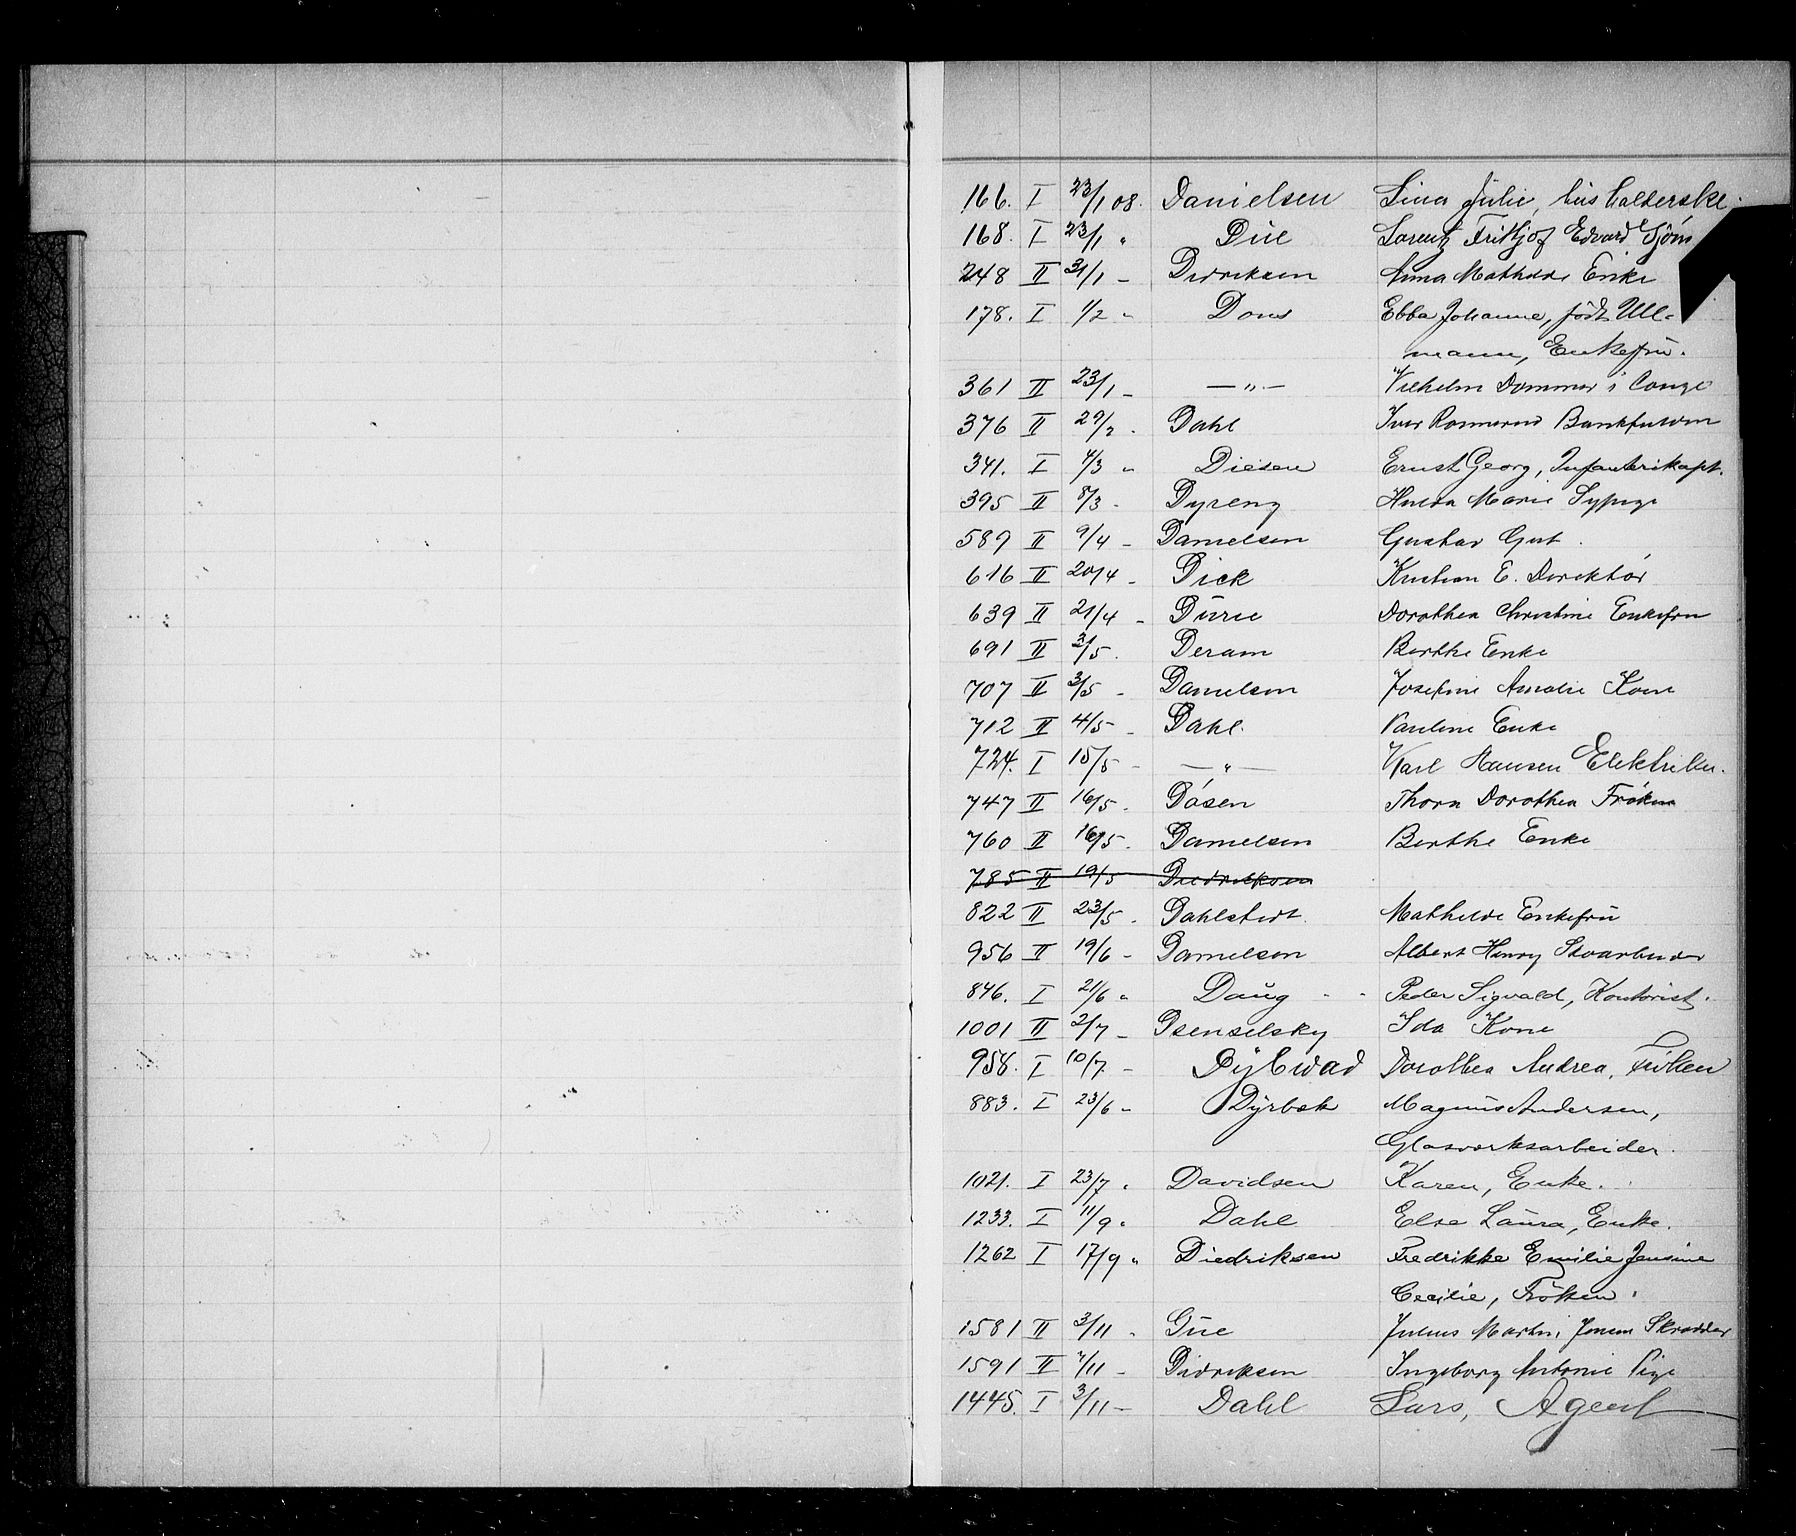 166. I 23/1 08. Danielsen Lina Julie, husholderske.
168. I 23/1 " Due Lorentz Frithjof Edvard Sjøm
248 II 31/1 - Didriksen Anna Mathilde Enke
178. I 1/2 " Dons Ebba Johanne, født Ull=
mann, Enkefru.
361 II 23/1 - —"— Vilhelm Dommer i Congo
376 II 29/2 - Dahl Iver
341. I 4/3 " Diesen Ernst Georg, Infanterikapt.
395 II 8/3 - Dyreng Hulda Marie Sypige
589 II 9/4 - Danielsen Gustav Gut.
616 II 20/4 - Dick Kristian E. Direktør
639 II 21/4 - Durie Dorothea Christine Enkefru
691 II 2/5. Deram Berthe Enke
707 II 3/5 - Danielsen Josefine Amalie Kone
712 II 4/5 - Dahl. Pauline Enke
724. I 15/5 - —"— Karl Hansen Elektriker.
747 II 16/5. Døsen Thora Dorothea Frøken
760 II 16/5. Danielsen Berthe Enke
785 II 19/5 Diedriksen
822 II 23/5. Dahlstedt. Mathilde Enkefru
956 II 19/6 - Danielsen Albert Henry
846. I 21/6 " Daug - - Peder Sigvald, Kontorist.
1001 II 2/7 - Dsenselsky Ida Kone
958. I 10/7. - Dybwad Dorothea Andrea, Frøken
883. I 23/6 " Dyrbek Magnus Andersen,
Glasværksarbeider.
1021. I 23/7 " Davidsen Karen, Enke.
1233. I 11/9 " Dahl Else Laura, Enke.
1262 I 17/9 " Diedriksen Fredrikke Emilie Jensine
Cecilie, Frøken.
1581 II 3/11 - Due Julius Martin Jensen Skrædder
1591 II 4/11 - Didriksen Ingeborg Antonie Pige
1445. I 3/11 - Dahl Lars, Agent